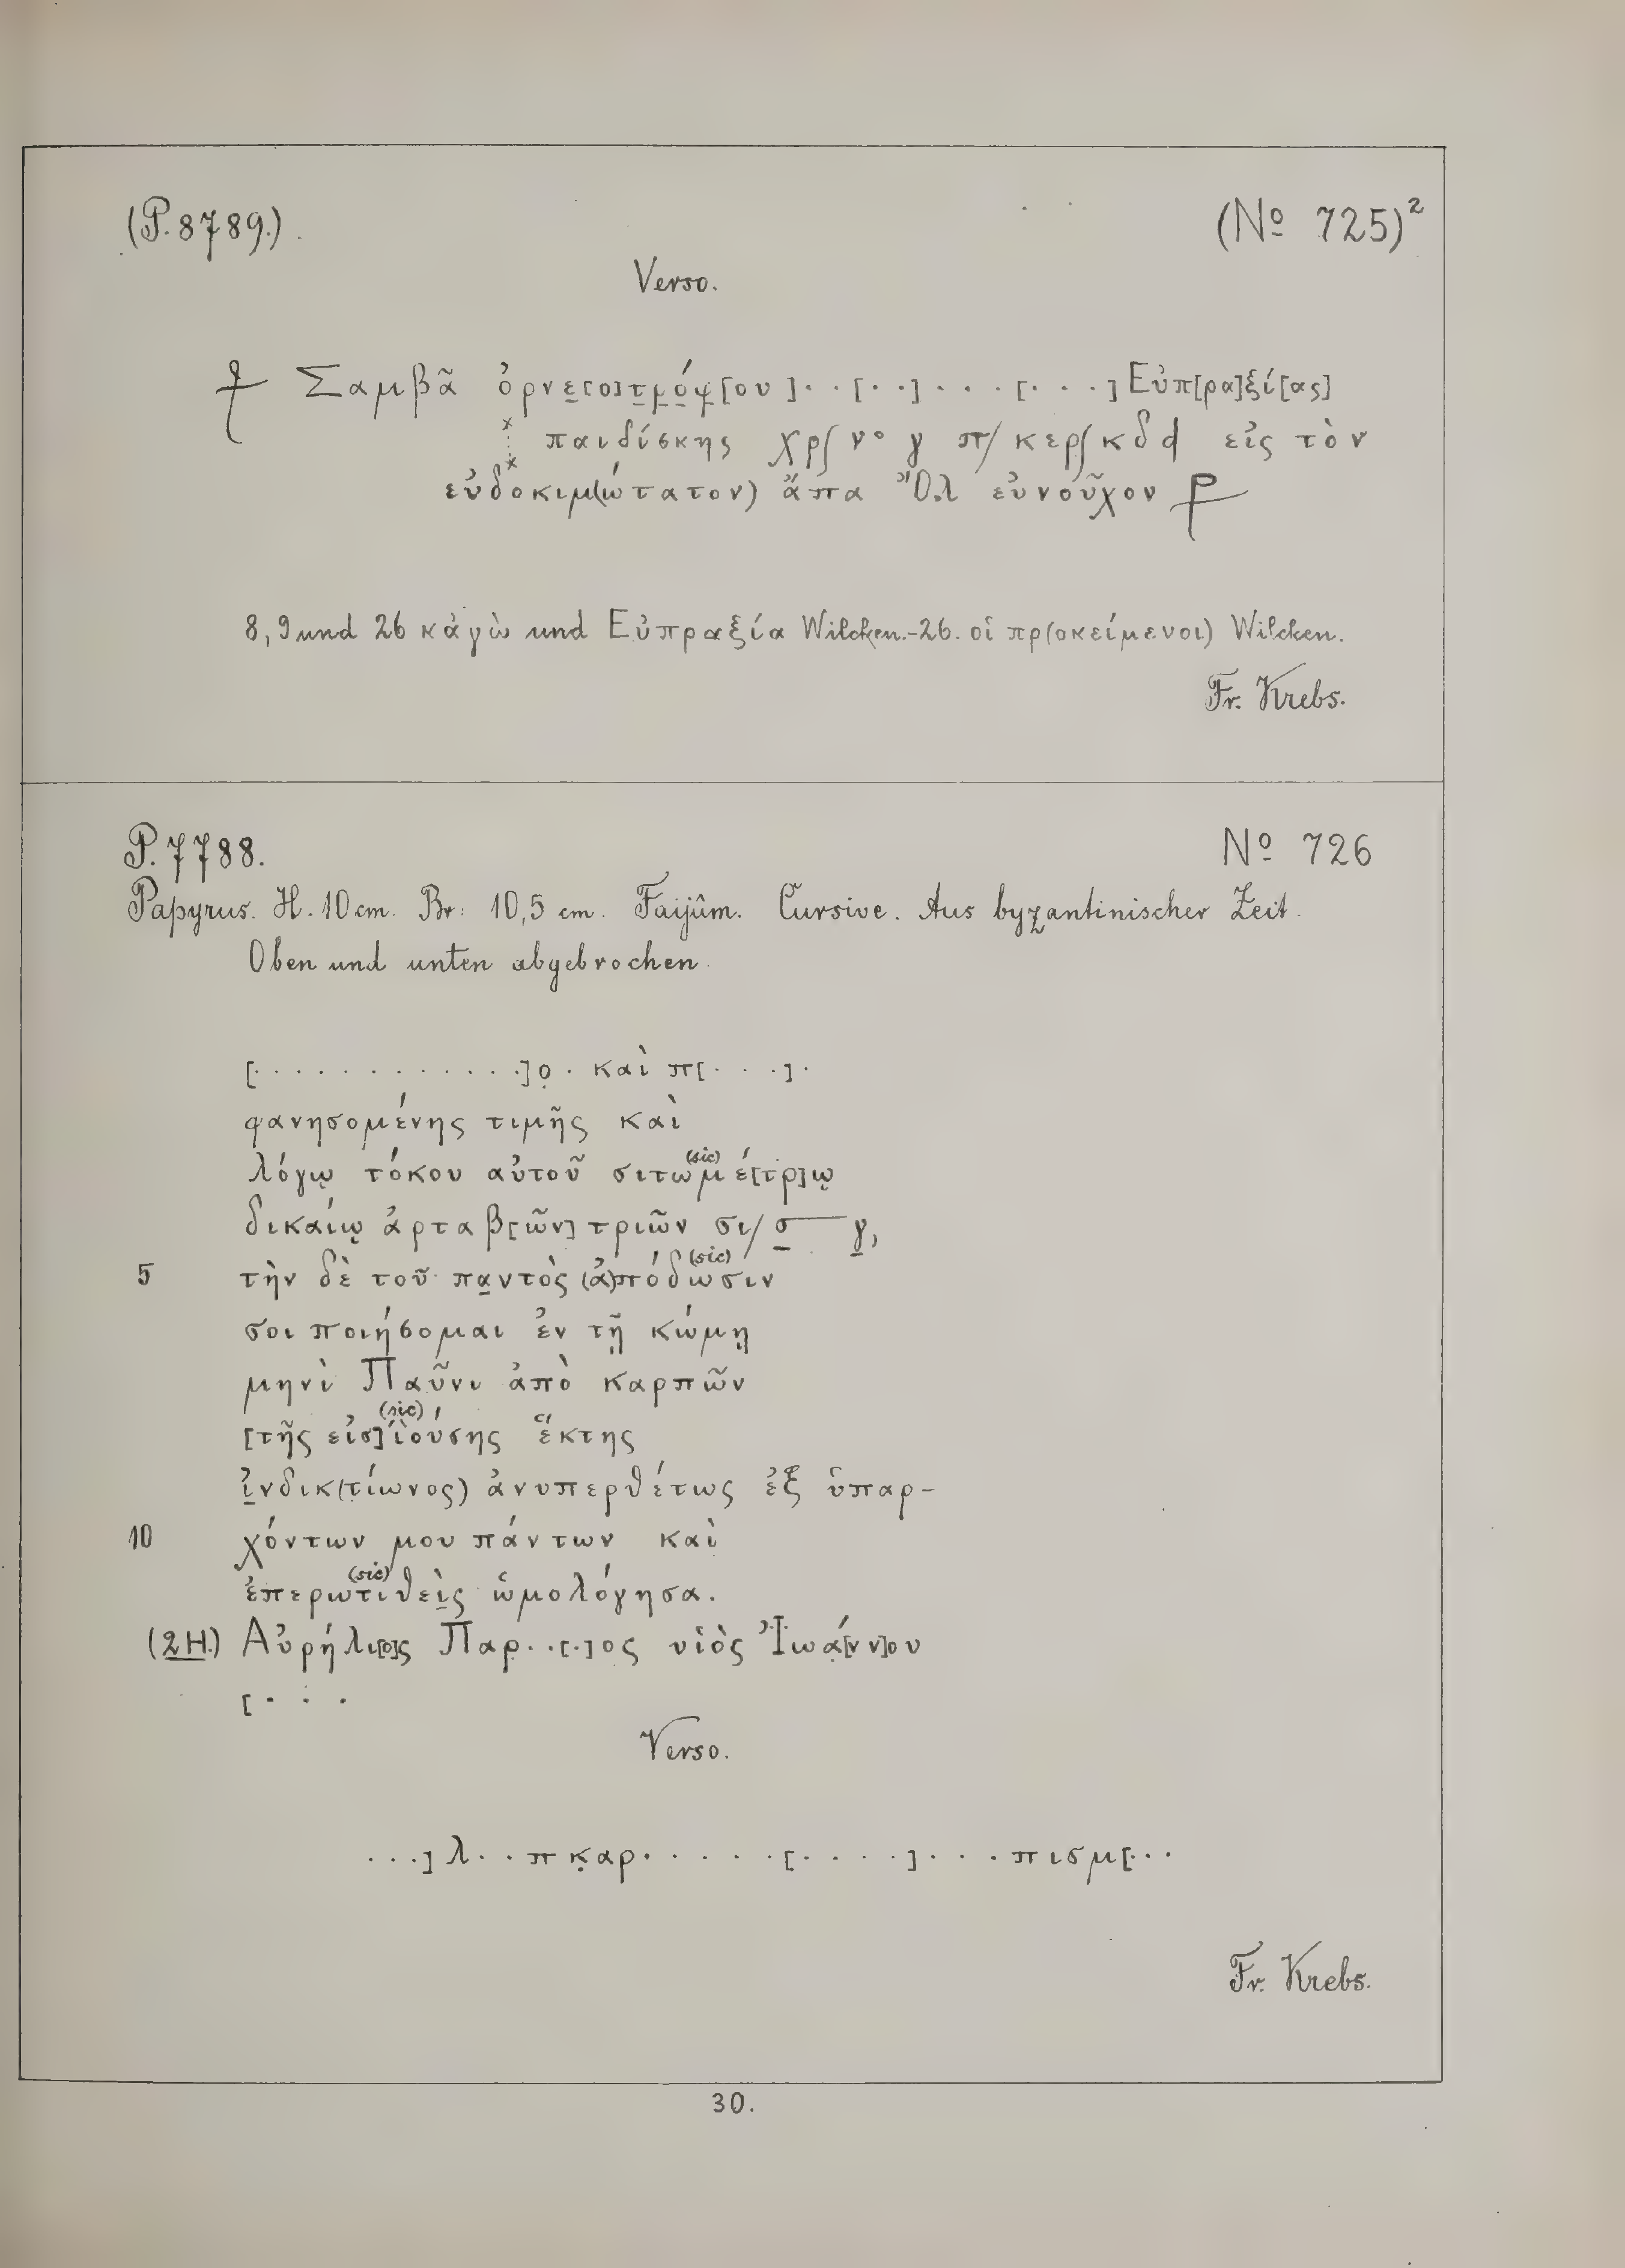 (P. 8789.) (Nº 725)²
Verso.
⳨ Σαμβᾶ ὀρνε[ο]τρόφ[ου]..[..]...[....] Εὐπ[ρα]ξί[ας]
παιδίσκης χρ∫ νº γ π/ κερ∫ κδ d εἰς τὸν
εὐδοκιμ(ώτατον) ἄπα Ὄλ εὐνοῦχον ⳨
8, 9 und 26 κἀγὼ und Εὐπραξία Wilcken. - 26. οἱ πρ(οκείμενοι) Wilcken.
Fr. Krebs.
P. 7788. Nº 726
Papyrus. H. 10 cm. Br: 10,5 cm. Faijûm. Cursive. Aus byzantinischer Zeit.
Oben und unten abgebrochen.
[.............]ο̣. καὶ π[....].
φανησομένης τιμῆς καὶ
λόγῳ τόκου αὐτοῦ σιτωμέ[τρ]ῳ (sic)
δικαίῳ ἀρταβ[ῶν] τριῶν σι/ σ— γ,
5 τὴν δὲ τοῦ παντὸς (ἀ)πόδωσιν (sic)
σοι ποιήσομαι ἐν τῇ κώμῃ
μηνὶ Παῦνι ἀπὸ καρπῶν
[τῆς εἰσ]ϊούσης (sic) ἕκτης
ἰνδικ(τίωνος) ἀνυπερθέτως ἐξ ὑπαρ-
10 χόντων μου πάντων καὶ
ἐπερωτιθεὶς (sic) ὡμολόγησα.
(2H.) Αὐρήλι[ο]ς Παρ...[.]ος υἱὸς Ἰωά[νν]ου
[...
Verso.
...]λ..πκαρ......[....]...πισμ[...
Fr. Krebs.
30.